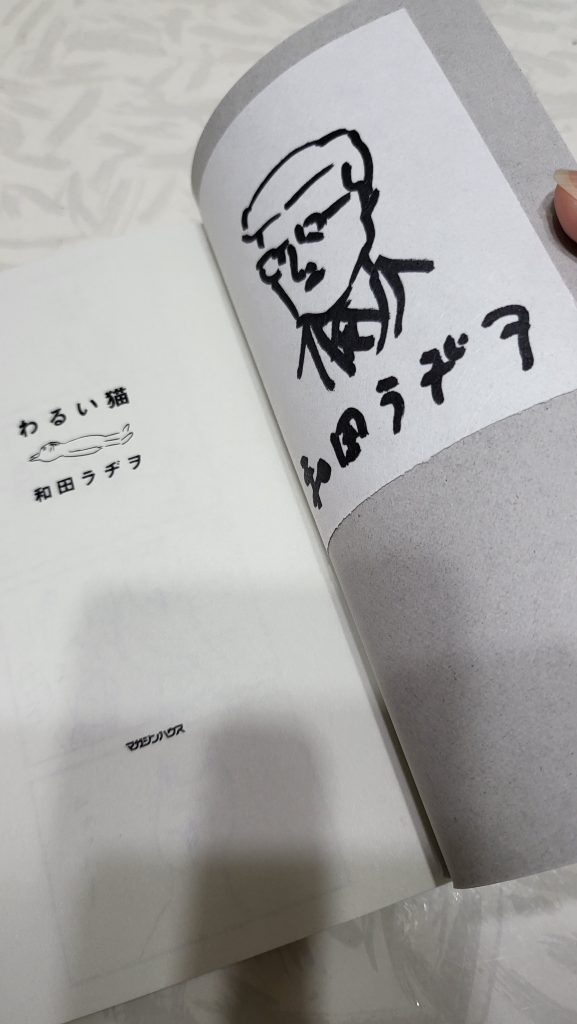 わるい猫
和田ラヂヲ
マガジンハウス
和田ラヂヲ